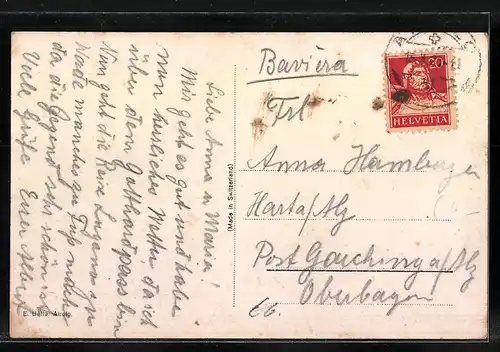 Liebe Anna u Maria!
Mir geht es gut und habe
nun herrliches Wetter da ich
über dem Gotthardpass bin
Nun geht die Reise Lugano zu
Werde manches zu Fuß machen
da die Gegend sehr schön ist
Viele Grüße Euer Albert
E. Airolo.
(Made in Switzerland)
20
HELVETIA
Baviera
Frl
Anna Hamberger
Harta/Alz
Post Garching a/Alz
Oberbayern